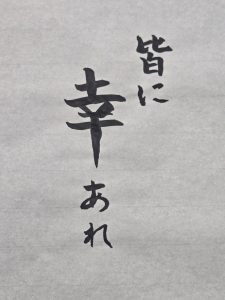 皆に
幸あれ